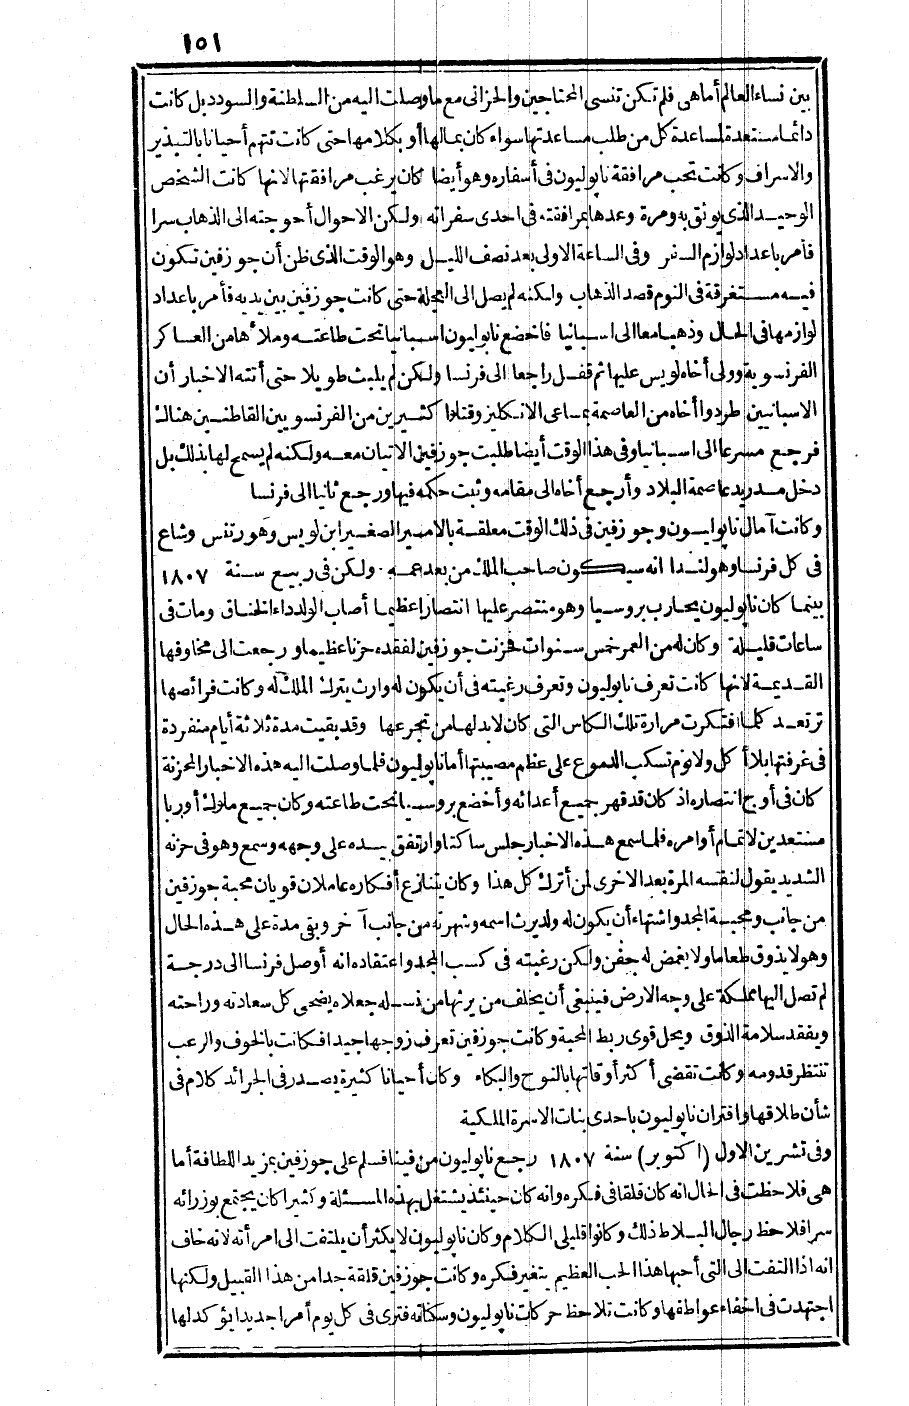 ١٥١
بين نساء العالم أما هي فلم تكن تنسى المحتاجين والحزانى مع ما وصلت اليه من السلطنة والسودد بل كانت
دائما مستعدة لمساعدة كل من طلب مساعدتها سواء كان بمالها أو بكلامها حتى كانت تتهم أحيانا بالتبذير
والاسراف وكانت تحب مرافقة نابوليون في أسفاره وهو أيضا كان يرغب مرافقتها لانها كانت الشخص
الوحيد الذي يوثق به ومرة وعدها بمرافقته في احدى سفراته ولكن الاحوال أحوجته الى الذهاب سرا
فأمر باعداد لوازم السفر وفى الساعة الاولى بعد نصف الليل وهو الوقت الذى ظن أن جوزفين تكون
فيه مستغرقة في النوم قصد الذهاب ولكنه لم يصل الى العجلة حتى كانت جوزفين بين يديه فأمر باعداد
لوازمها في الحال وذهبا معا الى اسبانيا فاخضع نابوليون اسبانيا تحت طاعته وملأها من العساكر
الفرنسوية وولى أخاه لويس عليها ثم قفل راجعا الى فرنسا ولكن لم يلبث طويلا حتى أتته الاخبار أن
الاسبانيين طردوا أخاه من العاصمة بمساعى الانكليز وقتلوا كثيرين من الفرنسويين القاطنين هناك
فرجع مسرعا الى اسبانيا وفى هذا الوقت أيضا طلبت جوزفين الاتيان معه ولكنه لم يسمح لها بذلك بل
دخل مدريد عاصمة البلاد وأرجع أخاه الى مقامه وثبت حكمه فيها ورجع ثانيا الى فرنسا
وكانت آمال نابوليون وجوزفين في ذلك الوقت معلقة بالامير الصغير ابن لويس وهورتنس وشاع
في كل فرنسا وهولندا انه سيكون صاحب الملك من بعد عمه . ولكن في ربيع سنة ١٨٠٧
بينما كان نابوليون يحارب بروسيا وهو منتصر عليها انتصارا عظيما أصاب الولد داء الخناق ومات في
ساعات قليلة وكان له من العمر خمس سنوات فحزنت جوزفين لفقده حزنا عظيما ورجعت الى مخاوفها
القديمة لانها كانت تعرف نابوليون وتعرف رغبته في أن يكون له وارث يترك الملك له وكانت فرائصها
ترتعد كلما افتكرت مرارة تلك الكاس التى كان لا بد لها من تجرعها وقد بقيت مدة ثلاثة أيام منفردة
في غرفتها بلا أكل ولا نوم تسكب الدموع على عظم مصيبتها أما نابوليون فلما وصلت اليه هذه الاخبار المحزنة
كان في أوج انتصاره اذ كان قد قهر جميع أعدائه وأخضع بروسيا تحت طاعته وكان جميع ملوك أوربا
مستعدين لاتمام أوامره فلما سمع هذه الاخبار جلس ساكتا وارتفق بيده على وجهه وسمع وهو في حزنه
الشديد يقول لنفسه المرة بعد الاخرى لمن أترك كل هذا وكان يتنازع أفكاره عاملان قويان محبة جوزفين
من جانب ومحبة المجد واشتهاء أن يكون له ولد يرث اسمه وشهرته من جانب آخر وبقى مدة على هذه الحال
وهو لا يذوق طعاما ولا يغمض له جفن ولكن رغبته في كسب المجد واعتقاده انه أوصل فرنسا الى درجة
لم تصل اليها مملكة على وجه الارض فينبغى أن يخلف من يرثها من نسله جعلاه يضحى كل سعادته وراحته
ويفقد سلامة الذوق ويحل قوى ربط المحبة وكانت جوزفين تعرف زوجها جيدا فكانت بالخوف والرعب
تنتظر قدومه وكانت تقضى أكثر أوقاتها بالنوح والبكاء وكان أحيانا كثيرة يصدر في الجرائد كلام في
شأن طلاقها واقتران نابوليون باحدى بنات الاسرة الملكية
وفى تشرين الاول (اكتوبر) سنة ١٨٠٧ رجع نابوليون من فينا فسلم على جوزفين بمزيد اللطافة أما
هى فلاحظت في الحال انه كان قلقا في فكره وانه كان حينئذ يشتغل بهذه المسئلة وكثيرا كان يجتمع بوزرائه
سرا فلاحظ رجال البلاط ذلك وكانوا قليلى الكلام وكان نابوليون لا يكثر أن يلتفت الى امرأته لانه خاف
انه اذا التفت الى التى أحبها هذا الحب العظيم يتغير فكره وكانت جوزفين قلقة جدا من هذا القبيل ولكنها
اجتهدت في اخفاء عواطفها وكانت تلاحظ حركات نابوليون وسكناته فترى في كل يوم أمرا جديدا يؤكد لها